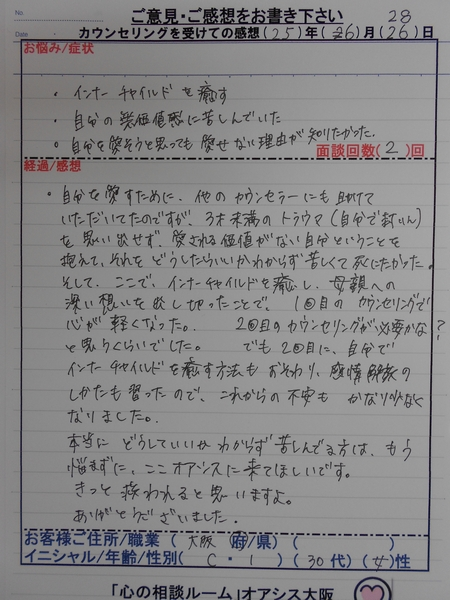 No.
ご意見・ご感想をお書き下さい 28
Date
カウンセリングを受けての感想(25)年(6)月(26)日
お悩み/症状
・インナーチャイルドを癒す
・自分の無価値感に苦しんでいた
・自分を愛そうと思っても愛せない理由が知りたかった.
面談回数(2)回
経過/感想
・自分を愛すために、他のカウンセラーにも助けて
いただいてたのですが、3才未満のトラウマ(自分で封いん)
を思い出せず、愛される価値がない自分ということを
抱えて、それをどうしたらいいかわからず苦しくて死にたかった。
そして、ここで、インナーチャイルドを癒し、母親への
深い想いを出し切ったことで、1回目のカウンセリングで
心が軽くなった。 2回目のカウンセリングが必要かな?
と思うくらいでした。 でも2回目に、自分で
インナーチャイルドを癒す方法もおそわり、感情解放の
しかたも習ったので、これからの不安もかなり少なく
なりました。
本当にどうしていいかわからず苦しんでる方は、もう
悩まずに、ここオアシスに来てほしいです。
きっと救われると思いますよ。
ありがとうございました.
お客様ご住所/職業(大阪 府/県)( )
イニシャル/年齢/性別(C・I)(30代)(女)性
「心の相談ルーム」オアシス大阪